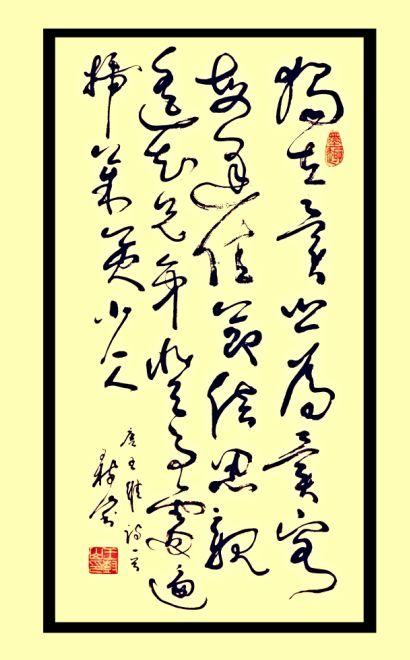 獨在異鄉為異客
每逢佳節倍思親
遥知兄弟登高處遍
插茱萸少一人
唐王維詩一首